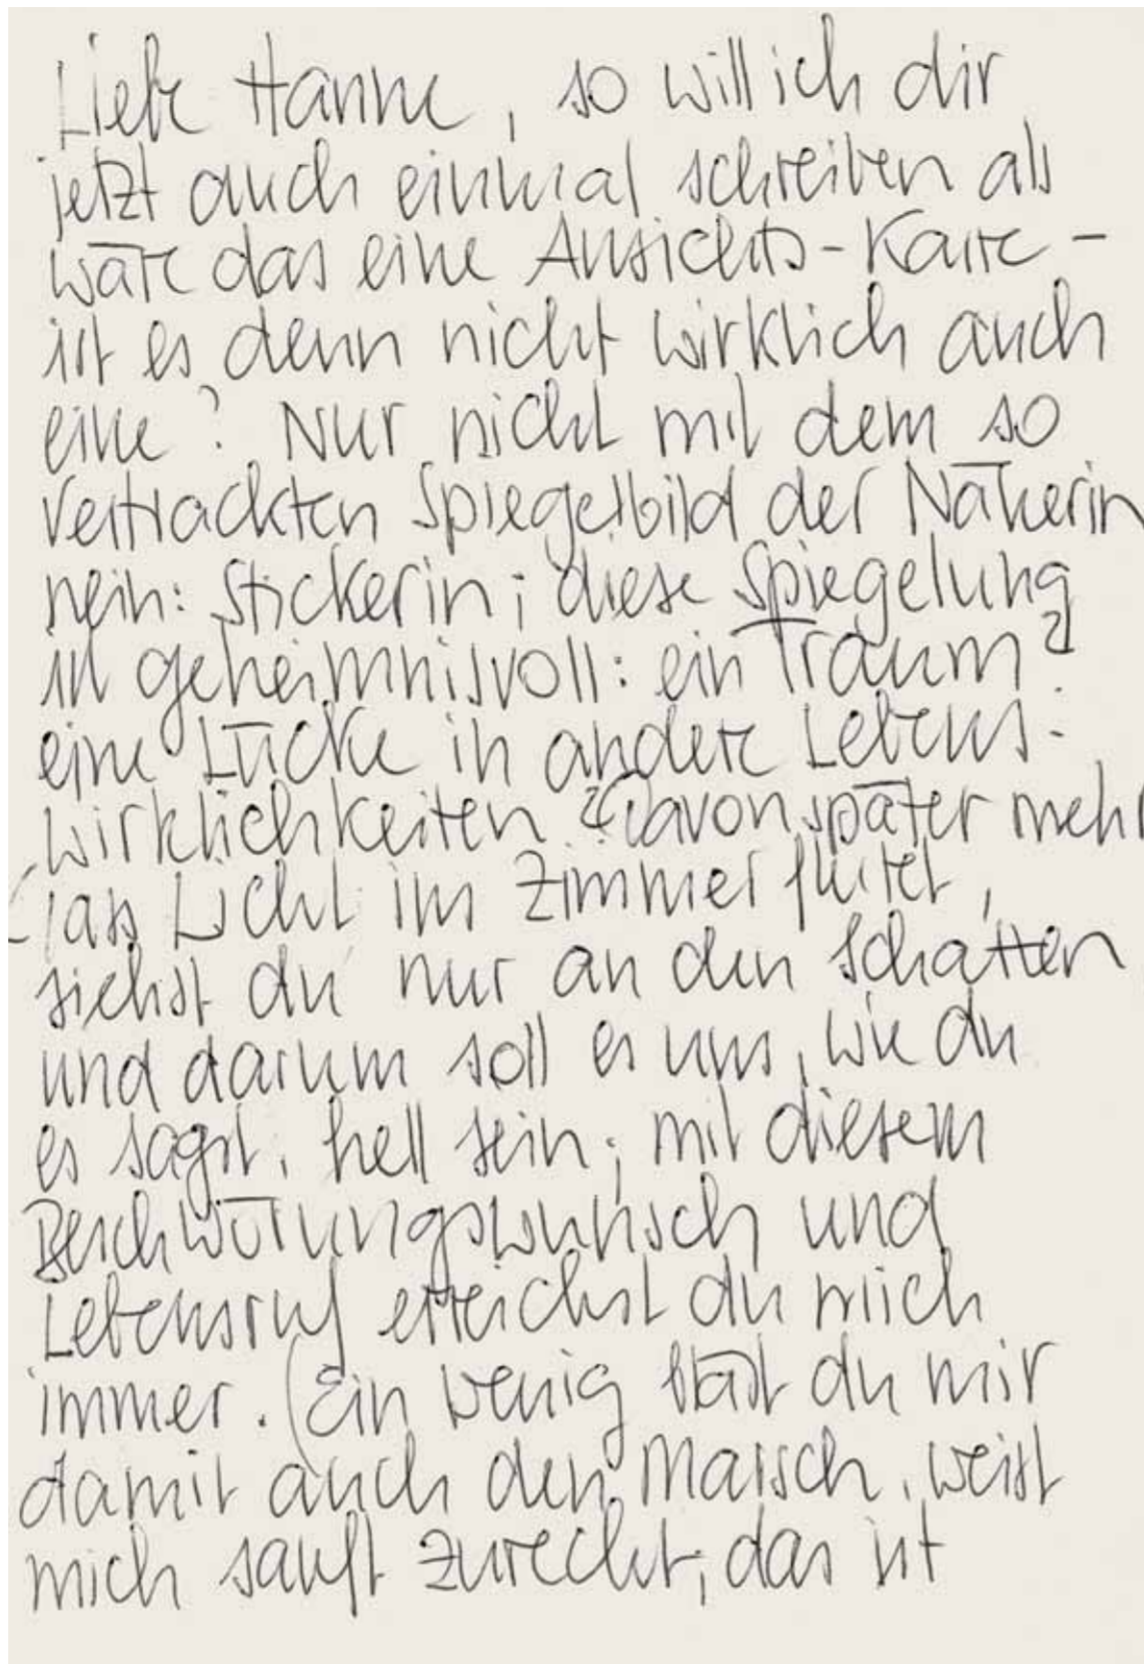 Liebe Hanne, so will ich dir
jetzt auch einmal schreiben als
wäre das eine Ansichts-Karte -
ist es denn nicht wirklich auch
eine? Nur nicht mit dem so
vertrackten Spiegelbild der Näherin
nein: Stickerin; diese Spiegelung
ist geheimnisvoll: ein Traum?
eine Lücke in andere Lebens-
wirklichkeiten? Davon später mehr
Dass Licht im Zimmer flutet,
siehst du nur an den Schatten
und darum soll es uns, wie du
es sagst, hell sein; mit diesem
Beschwörungswunsch und
Lebensruf erreichst du mich
immer. (Ein wenig bläst du mir
damit auch den Marsch, weist
mich sanft zurecht; das ist